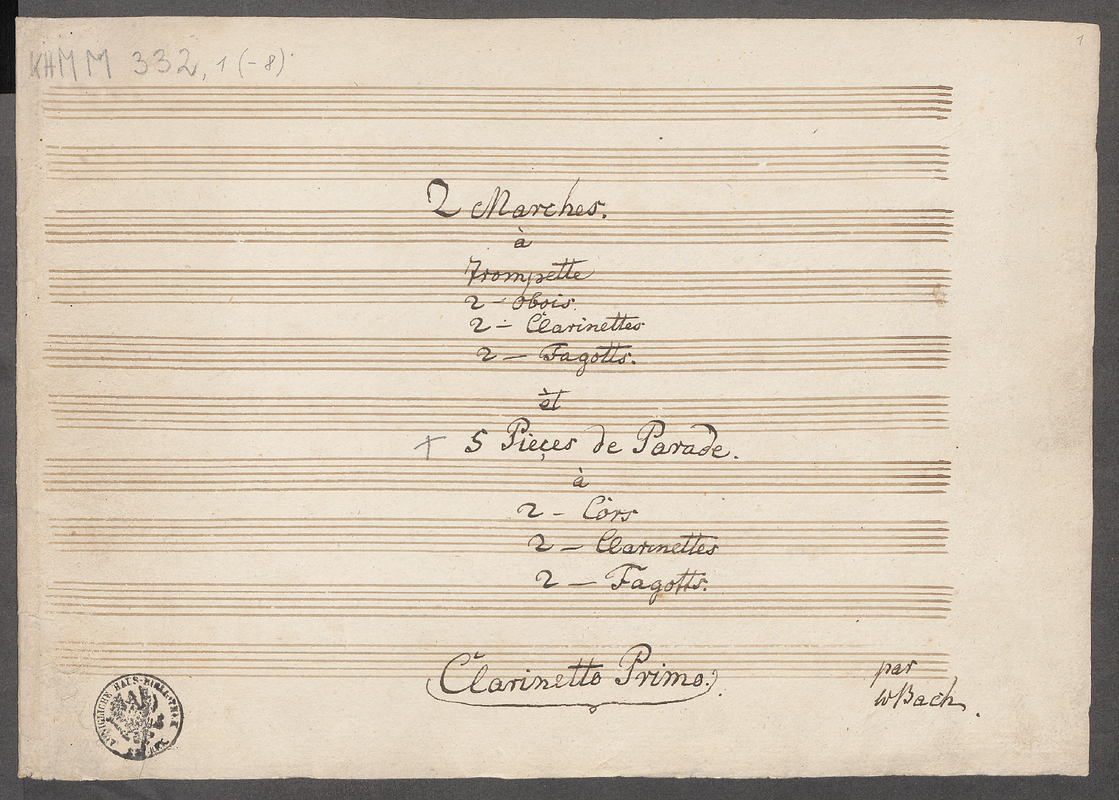 KHM M 332, 1 (-8)
1
2 Marches.
à
Trompette
2 - Obois.
2 - Clarinettes
2 - Fagotts.
èt
+ 5 Pieçes de Parade.
à
2 - Côrs
2 - Clarinettes
2 - Fagotts.
Clarinetto Primo.
par
WBach.
KÖNIGLICHE HAUS-BIBLIOTHEK